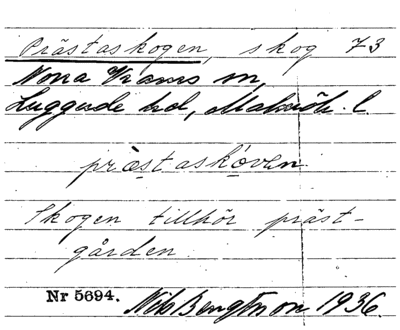 Prästaskogen, skog 73
Norra Vrams sn,
Luggude hd, Malmöh. l.
præstaskoven
Skogen tillhör präst-
gården
Nr 5694. Nils Bengtsson 1936.